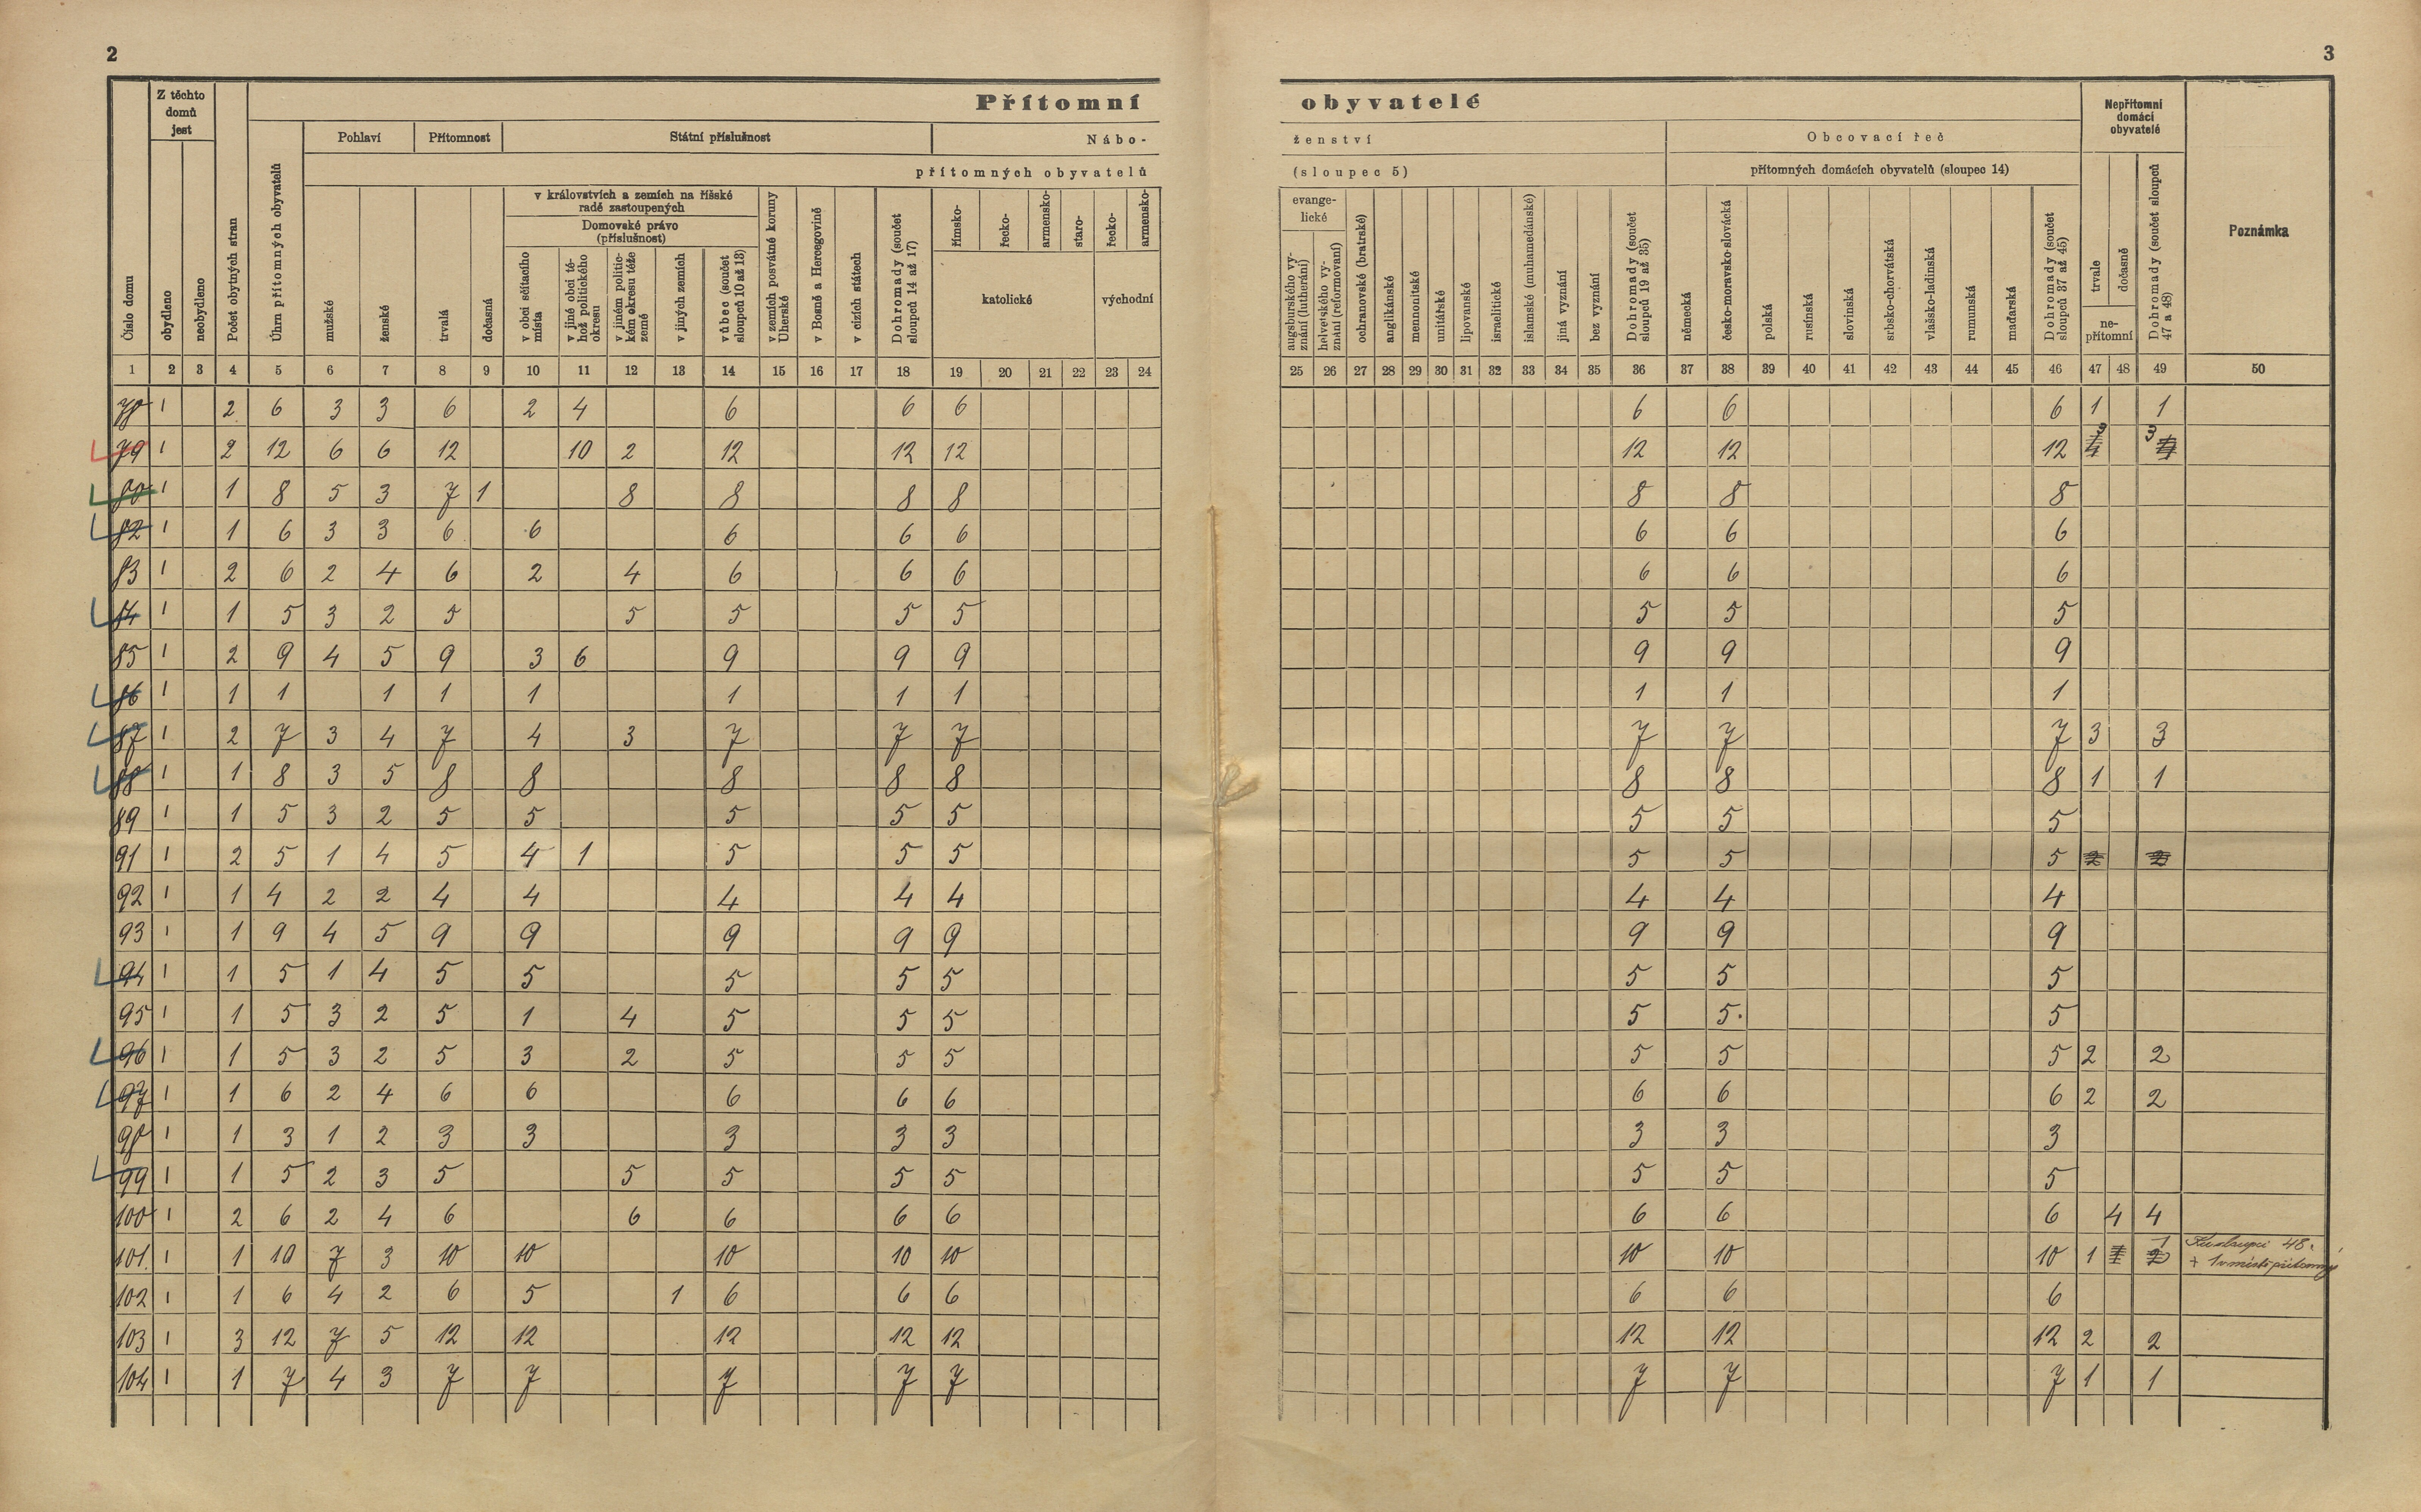 2
3
Přítomní obyvatelé
Z těchto domů jest
Pohlaví
Přítomnost
Státní příslušnost
Nábo-
ženství
Obcovací řeč
Nepřítomní domácí obyvatelé
přítomných obyvatelů
(sloupec 5)
přítomných domácích obyvatelů (sloupec 14)
v královstvích a zemích na říšské radě zastoupených
Domovské právo (příslušnost)
evange-lické
katolické
východní
ne-přítomní
Poznámka
Číslo domu
obydleno
neobydleno
Počet obytných stran
Úhrn přítomných obyvatelů
mužské
ženské
trvalá
dočasná
v obci sčítacího místa
v jiné obci té-hož politického okresu
v jiném politic-kém okresu téže země
v jiných zemích
vůbec (součet sloupců 10 až 13)
v zemích posvátné koruny Uherské
v Bosně a Hercegovině
v cizích státech
Dohromady (součet sloupců 14 až 17)
římsko-
řecko-
armensko-
staro-
řecko-
armensko-
augsburského vy-znání (lutheráni)
helvetského vy-znání (reformovaní)
ochranovské (bratrské)
anglikánské
mennonitské
unitářské
lipovanské
israelitické
islamské (muhamedánské)
jiná vyznání
bez vyznání
Dohromady (součet sloupců 19 až 35)
německá
česko-moravsko-slovácká
polská
rusínská
slovinská
srbsko-chorvátská
vlašsko-ladinská
rumunská
maďarská
Dohromady (součet sloupců 37 až 45)
trvale
dočasně
Dohromady (součet sloupců 47 a 48)
1 2 3 4 5 6 7 8 9 10 11 12 13 14 15 16 17 18 19 20 21 22 23 24 25 26 27 28 29 30 31 32 33 34 35 36 37 38 39 40 41 42 43 44 45 46 47 48 49 50
78 1 2 6 3 3 6 2 4 6 6 6 6 6 6 1 1
79 1 2 12 6 6 12 10 2 12 12 12 12 12 12 3 3
80 1 1 8 5 3 7 1 8 8 8 8 8 8 8
82 1 1 6 3 3 6 6 6 6 6 6 6 6
83 1 2 6 2 4 6 2 4 6 6 6 6 6 6
84 1 1 5 3 2 5 5 5 5 5 5 5 5
85 1 2 9 4 5 9 3 6 9 9 9 9 9 9
86 1 1 1 1 1 1 1 1 1 1 1 1
87 1 2 7 3 4 7 4 3 7 7 7 7 7 7 3 3
88 1 1 8 3 5 8 8 8 8 8 8 8 8 1 1
89 1 1 5 3 2 5 5 5 5 5 5 5 5
91 1 2 5 1 4 5 4 1 5 5 5 5 5 5 2 2
92 1 1 4 2 2 4 4 4 4 4 4 4 4
93 1 1 9 4 5 9 9 9 9 9 9 9 9
94 1 1 5 1 4 5 5 5 5 5 5 5 5
95 1 1 5 3 2 5 1 4 5 5 5 5 5 5
96 1 1 5 3 2 5 3 2 5 5 5 5 5 5 2 2
97 1 1 6 2 4 6 6 6 6 6 6 6 6 2 2
98 1 1 3 1 2 3 3 3 3 3 3 3 3
99 1 1 5 2 3 5 5 5 5 5 5 5 5
100 1 2 6 2 4 6 6 6 6 6 6 6 6 4 4
101 1 1 10 7 3 10 10 10 10 10 10 10 10 1 1 48.
102 1 1 6 4 2 6 5 1 6 6 6 6 6 6
103 1 3 12 7 5 12 12 12 12 12 12 12 12 2 2
104 1 1 7 4 3 7 7 7 7 7 7 7 7 1 1